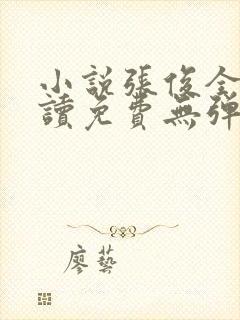 小說張俊全
讀免費無彈
廖藝